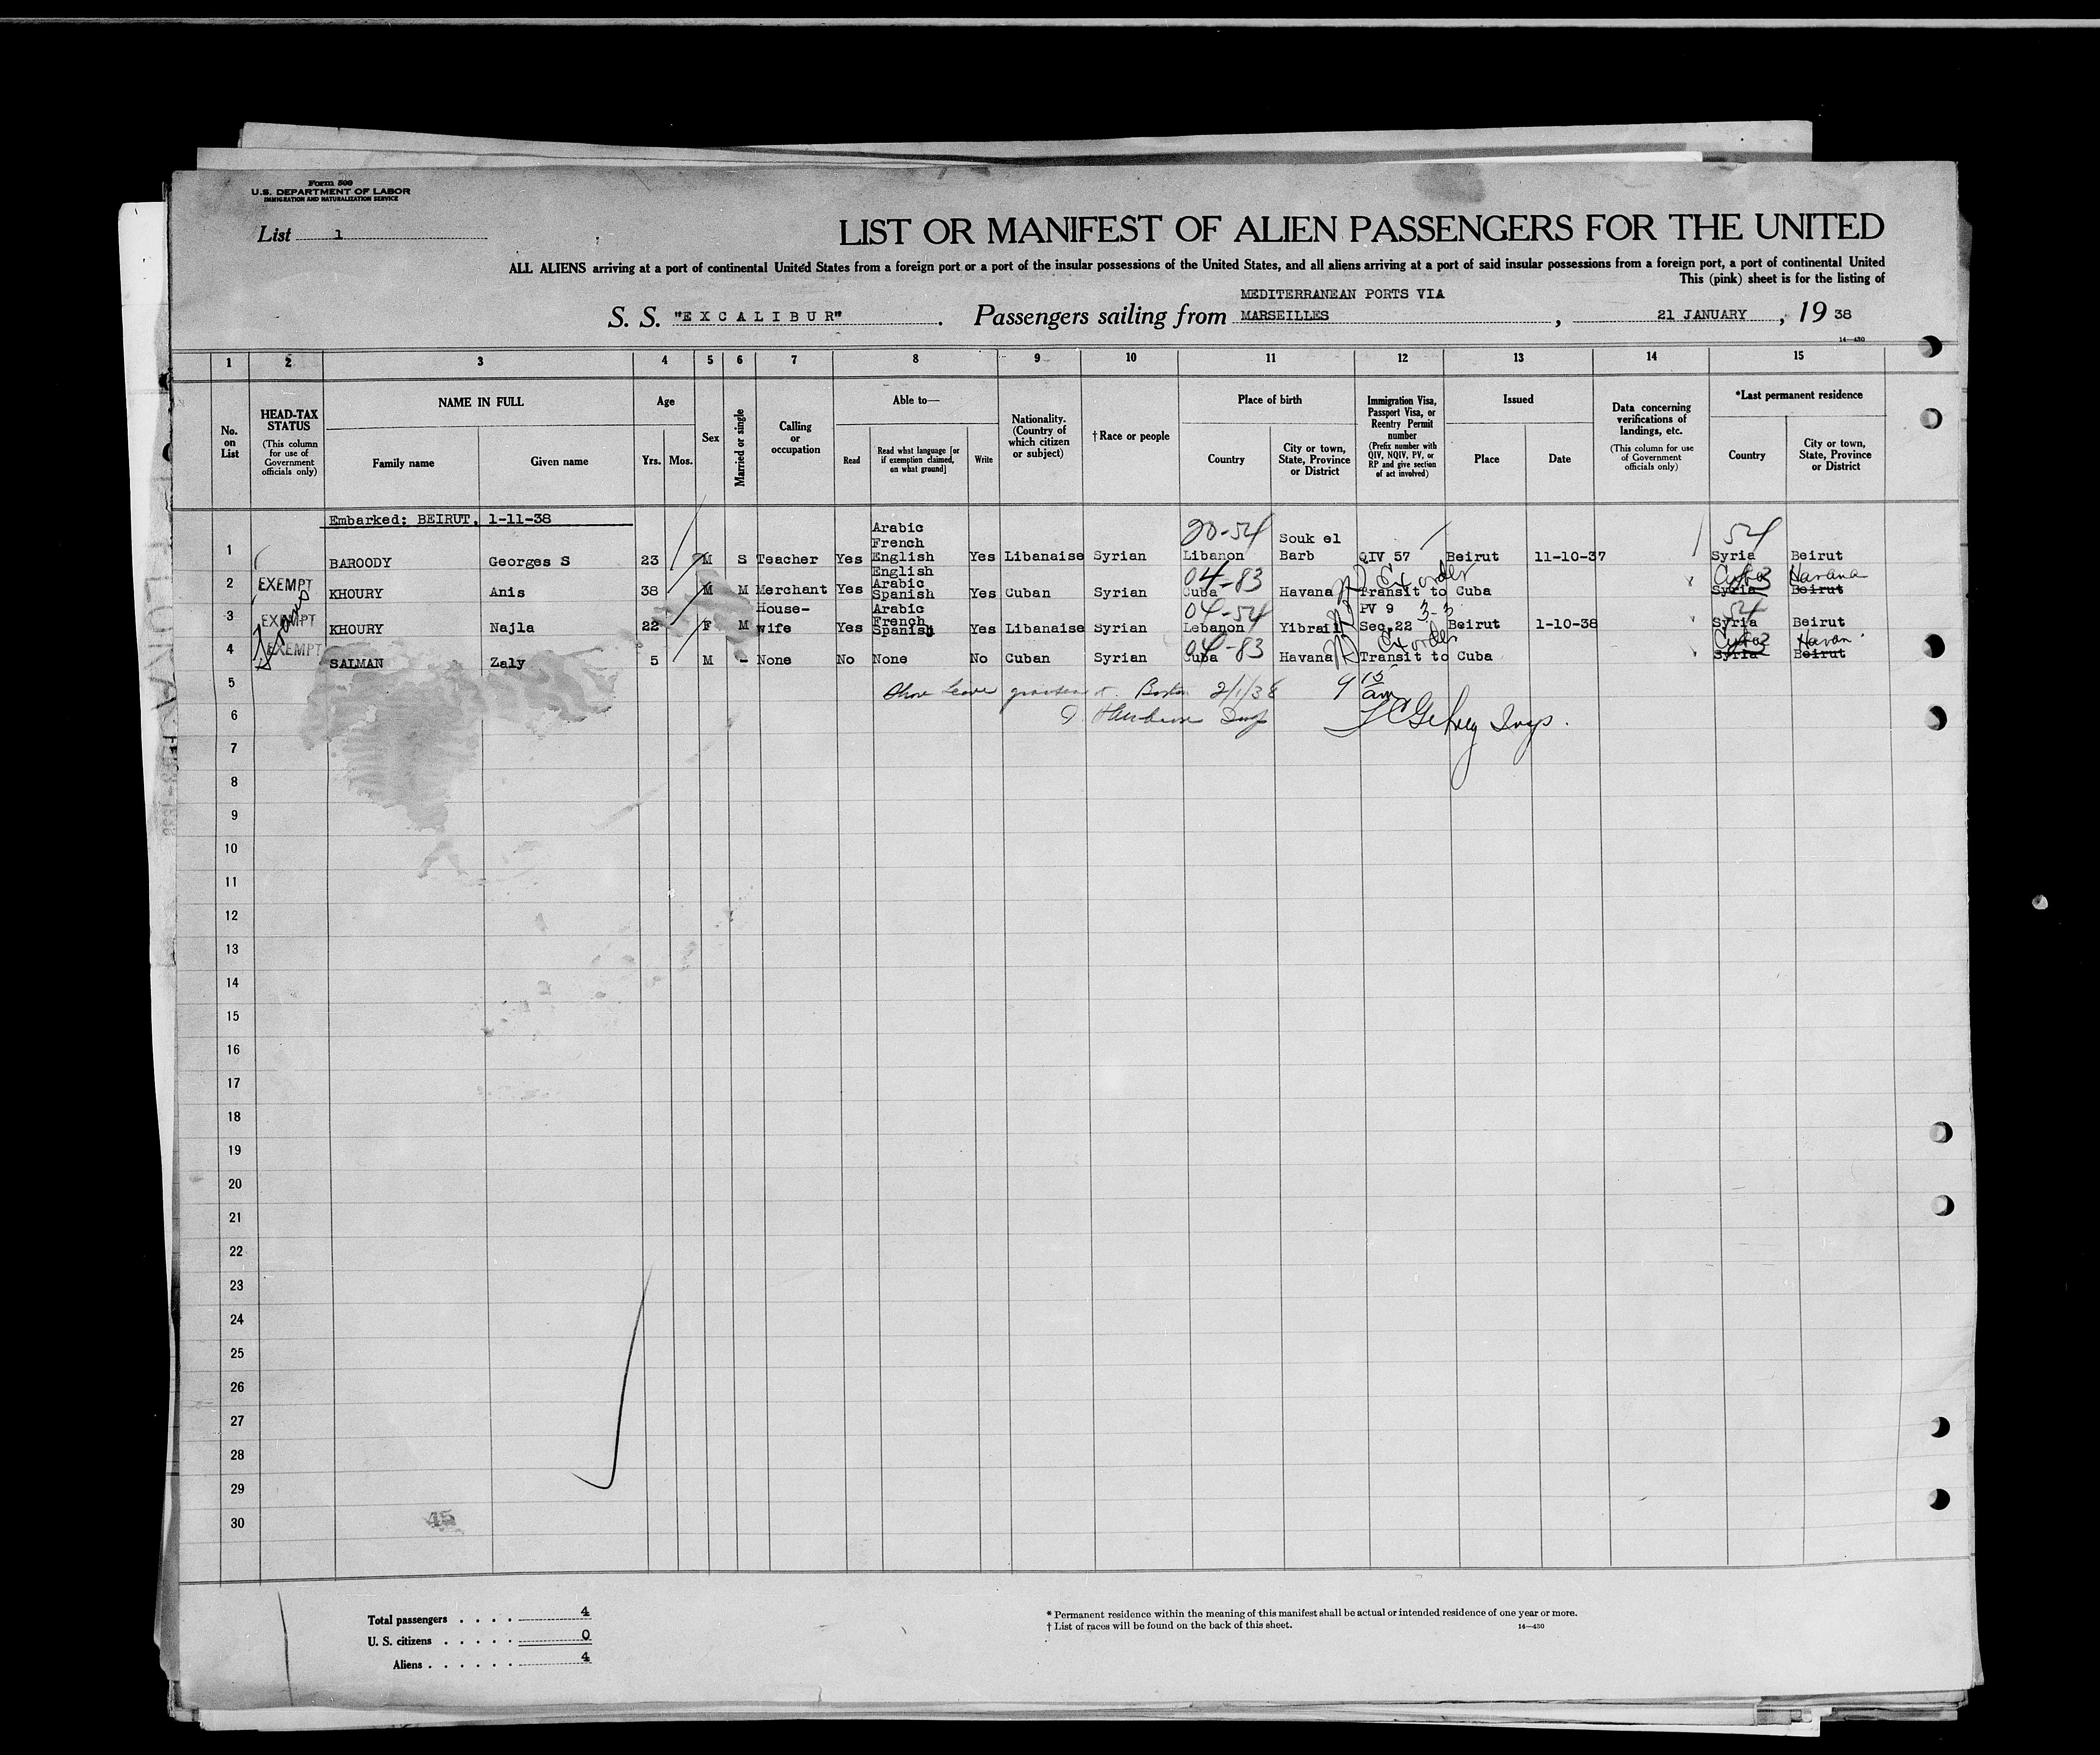 Form 500
U.S. DEPARTMENT OF LABOR
IMMIGRATION AND NATURALIZATION SERVICE
List 1
LIST OR MANIFEST OF ALIEN PASSENGERS FOR THE UNITED
ALL ALIENS arriving at a port of continental United States from a foreign port or a port of the insular possessions of the United States, and all aliens arriving at a port of said insular possessions from a foreign port, a port of continental United
This (pink) sheet is for the listing of
MEDITERRANEAN PORTS VIA
S. S. "EXCALIBUR". Passengers sailing from MARSEILLES, 21 JANUARY, 19 38
14—430
1 2 3 4 5 6 7 8 9 10 11 12 13 14 15
No. on List
HEAD-TAX STATUS (This column for use of Government officials only)
NAME IN FULL
Family name
Given name
Age
Yrs. Mos.
Sex
Married or single
Calling or occupation
Able to—
Read
Read what language [or if exemption claimed, on what ground]
Write
Nationality. (Country of which citizen or subject)
†Race or people
Place of birth
Country
City or town, State, Province or District
Immigration Visa, Passport Visa, or Reentry Permit number (Prefix number with QIV, NQIV, PV, or RP and give section of act involved)
Issued
Place
Date
Data concerning verifications of landings, etc. (This column for use of Government officials only)
*Last permanent residence
Country
City or town, State, Province or District
Embarked: BEIRUT, 1-11-38
1 BAROODY Georges S 23 M S Teacher Yes Arabic French English Yes Libanaise Syrian 20-54 Libanon Souk el Barb QIV 57 Beirut 11-10-37 54 Syria Beirut
2 EXEMPT KHOURY Anis 38 M M Merchant Yes English Arabic Spanish Yes Cuban Syrian 04-83 Cuba Havana Ex order Transit to Cuba Cuba Syria Havana Beirut
3 EXEMPT KHOURY Najla 22 F M House-wife Yes Arabic French Spanish Yes Libanaise Syrian 04-54 Lebanon Yibrail PV 9 3-3 Sec.22 Beirut 1-10-38 54 Syria Beirut
4 EXEMPT SALMAN Zaly 5 M - None No None No Cuban Syrian 04-83 Cuba Havana Ex order Transit to Cuba Cuba Syria Havan Beirut
5 Shore Leave granted Boston 2/1/38 9 15 am
6 Insp
7
8
9
10
11
12
13
14
15
16
17
18
19
20
21
22
23
24
25
26
27
28
29
30
45
Total passengers . . . . 4
U. S. citizens . . . . . 0
Aliens . . . . . . 4
* Permanent residence within the meaning of this manifest shall be actual or intended residence of one year or more.
† List of races will be found on the back of this sheet.
14—430